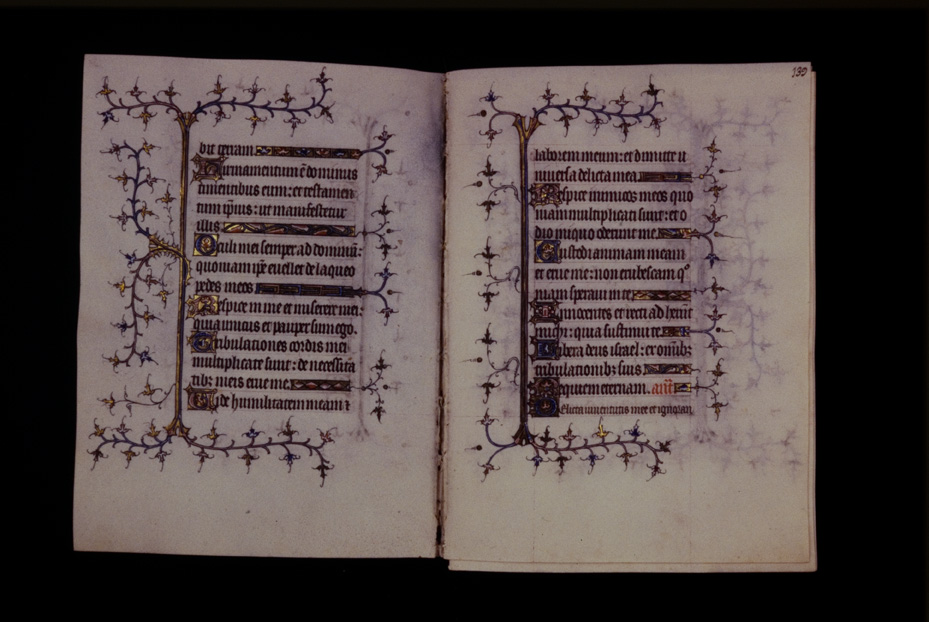 bit terram
Firmamentum ē dominus
timentibus eum: et testamen
tum ipsius: ut manifestetur
illis
Oculi mei semper ad dominū:
quoniam ipē euellet de laqueo
pedes meos
Respice in me et miserere mei:
quia unicus et pauper sum ego.
Tribulationes cordis mei
multiplicate sunt: de necessita
tibꝫ meis erue me.
Vide humilitatem meam ⁊
139
laborem meum: et dimitte u
niuersa delicta mea
Respice inimicos meos quo
niam multiplicati sunt: et o
dio iniquo oderunt me.
Custodi animam meam
et erue me: non erubescam qͦ
niam speraui in te
Innocentes et recti adheser̄t
michi: quia sustinui te.
Libera deus israel: ex omībꝫ
tribulationibꝫ suis
Requiem eternam. añt
Delicta iuuentutis mee et ignoran